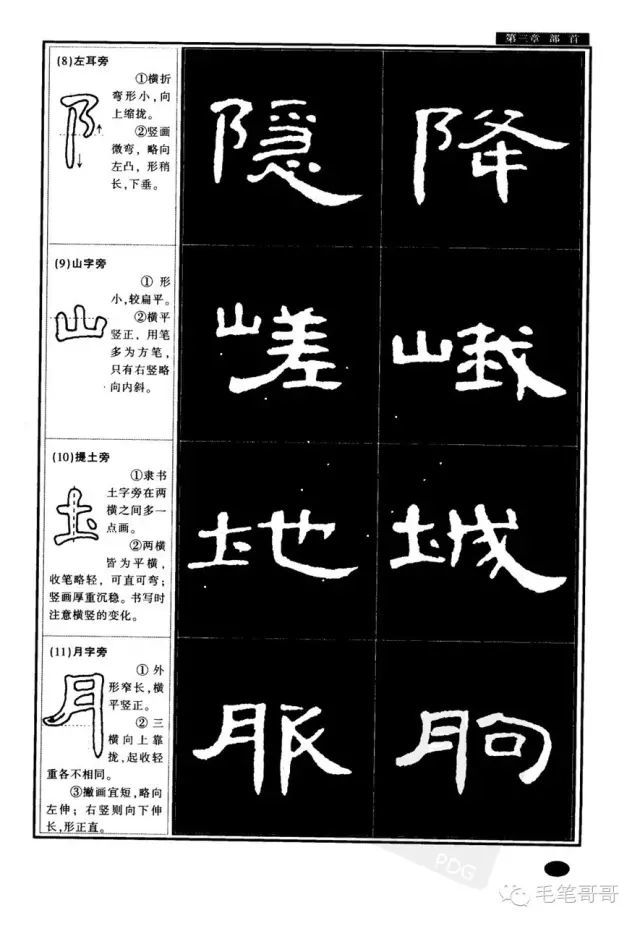 第三章 部 首
(8)左耳旁
①横折
弯形小，向
上缩拢。
②竖画
微弯，略向
左凸，形稍
长，下垂。
阝
隐 降
(9)山字旁
① 形
小，较扁平。
②横平
竖正，用笔
多为方笔，
只有右竖略
向内斜。
山
嵯 峨
(10)提土旁
①隶书
土字旁在两
横之间多一
点画。
②两横
皆为平横，
收笔略轻，可直可弯；
竖画厚重沉稳。书写时
注意横竖的变化。
地 城
(11)月字旁
① 外
形窄长，横
平竖正。
② 三
横向上靠
拢，起收轻
重各不相同。
③撇画宜短，略向
左伸；右竖则向下伸
长，形正直。
月
PDG
毛笔哥哥